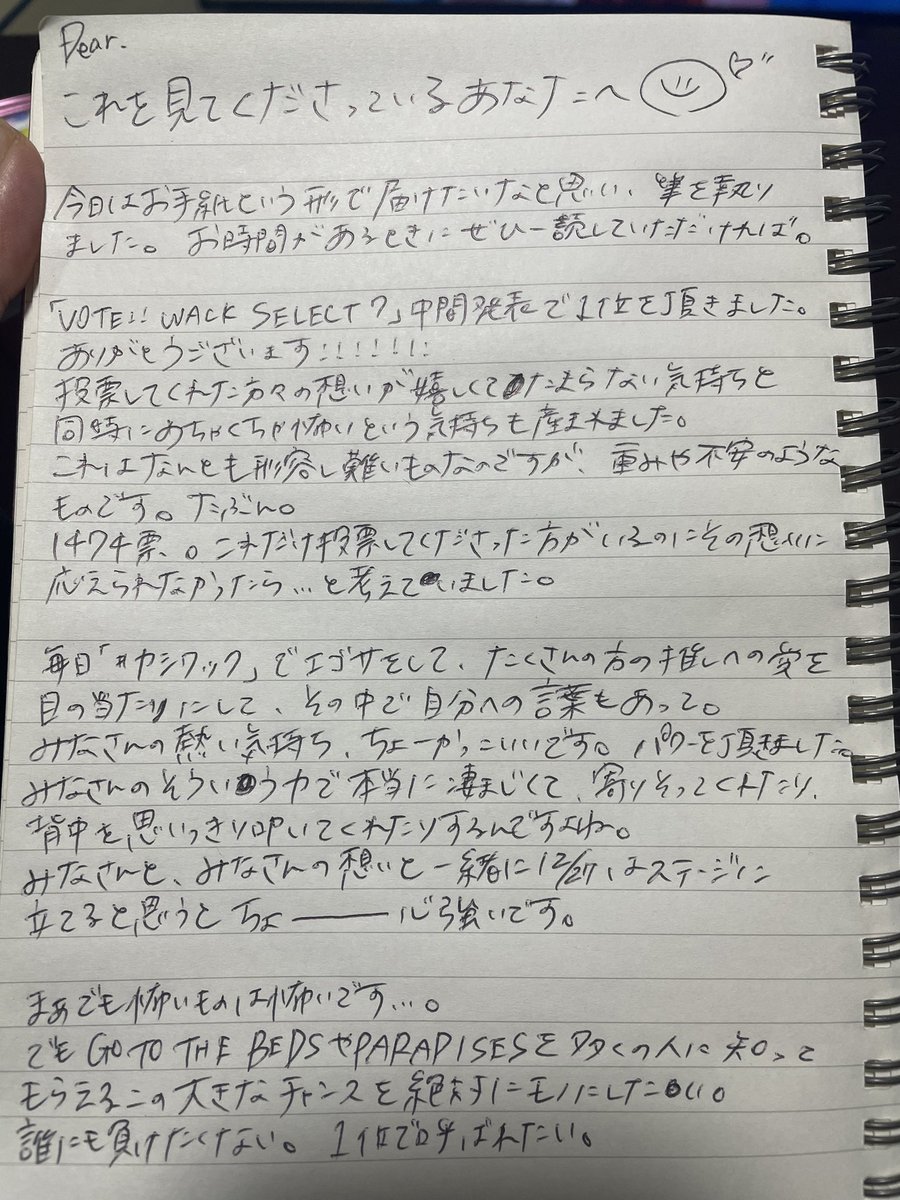 Dear.
これを見てくださっているあなたへ
今日はお手紙という形で届けたいなと思い、筆を執り
ました。お時間があるときにぜひ一読していただければ。
「VOTE!! WACK SELECT 7」中間発表で1位を頂きました。
ありがとうございます!!!!!!!
投票してくれた方々の想いが嬉しくてたまらない気持ちと
同時にめちゃくちゃ怖いという気持ちも産まれました。
これはなんとも形容し難いものなのですが、重みや不安のような
ものです。たぶん。
1474票、。これだけ投票してくださった方がいるのにその想いに
応えられなかったら…と考えていました。
毎日「#ヤシワック」でエゴサをして、たくさんの方の推しへの愛を
目の当たりにして、その中で自分への言葉もあって。
みなさんの熱い気持ち、ちょーかっこいいです。パワーを頂きました。
みなさんのそういう力で本当に凄まじくて、寄りそってくれたり、
背中を思いっきり叩いてくれたりするんですよね。
みなさんと、みなさんの想いと一緒に12/27はステージに
立てると思うとちょ———心強いです。
まぁでも怖いものは怖いです…。
でもGO TO THE BEDSやPARADISESを多くの人に知って
もらえるこの大きなチャンスを絶対にモノにしたい。
誰にも負けたくない。1位で呼ばれたい。